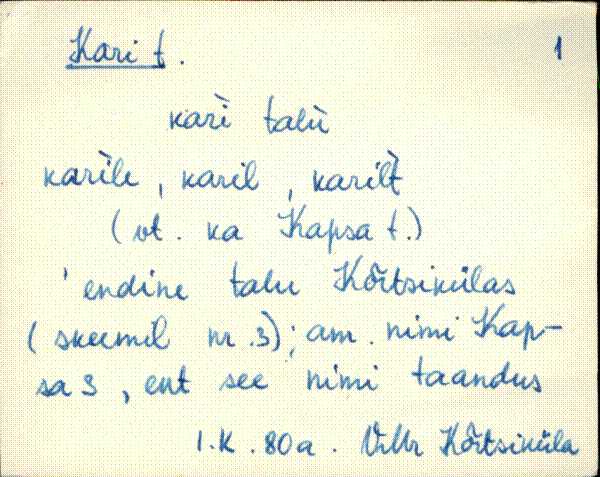 Kari t. 1
kari̇̀ talù
karìle, karil, karilt̀
(vt. ka Kapsa t.)
'endine talu Kõrtsikülas
(skeemil nr. 3); am. nimi Kap-
sa 3, ent see nimi taandus
I.K. 80a. VMr Kõrtsiküla